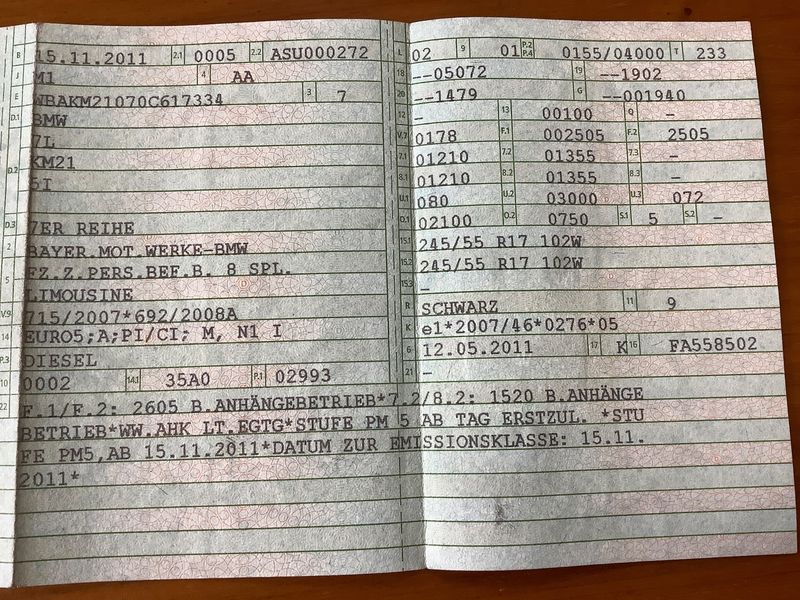 B 15.11.2011 2.1 0005 2.2 ASU000272
J M1 4 AA
E WBAKM21070C617334 3 7
D.1 BMW
7L
D.2 KM21
5I
D.3 7ER REIHE
2 BAYER.MOT.WERKE-BMW
5 FZ.Z.PERS.BEF.B. 8 SPL.
LIMOUSINE
V.9 715/2007*692/2008A
14 EURO5;A;PI/CI; M, N1 I
P.3 DIESEL
10 0002 14.1 35A0 P.1 02993
L 02 9 01 P.2 P.4 0155/04000 T 233
18 --05072 19 --1902
20 --1479 G --001940
12 - 13 00100 Q -
V.7 0178 F.1 002505 F.2 2505
7.1 01210 7.2 01355 7.3 -
8.1 01210 8.2 01355 8.3 -
U.1 080 U.2 03000 U.3 072
O.1 02100 O.2 0750 S.1 5 S.2 -
15.1 245/55 R17 102W
15.2 245/55 R17 102W
15.3 -
R SCHWARZ 11 9
K e1*2007/46*0276*05
6 12.05.2011 17 K 16 FA558502
21 -
22 F.1/F.2: 2605 B.ANHÄNGEBETRIEB*7.2/8.2: 1520 B.ANHÄNGE
BETRIEB*WW.AHK LT.EGTG*STUFE PM 5 AB TAG ERSTZUL. *STU
FE PM5,AB 15.11.2011*DATUM ZUR EMISSIONSKLASSE: 15.11.
2011*